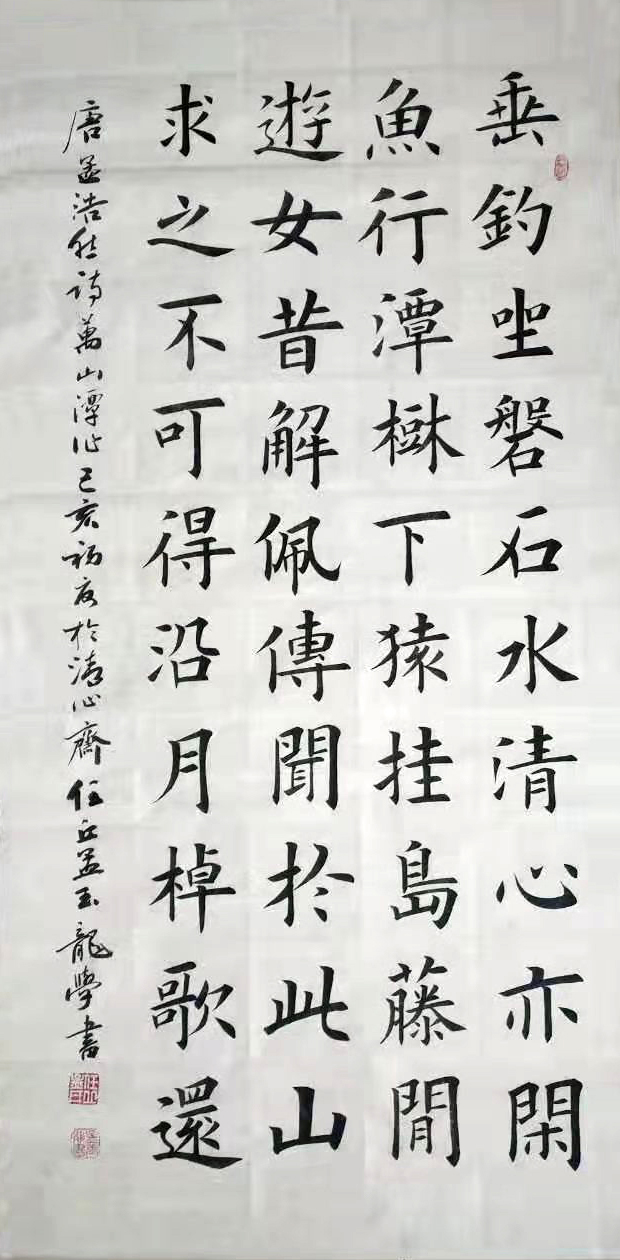 垂釣坐磐石水清心亦閑
魚行潭樾下猿挂島藤閒
遊女昔解佩傳聞於此山
求之不可得沿月棹歌還
唐孟浩然詩萬山潭作己亥初夜於清心齋任丘孟玉龍學書